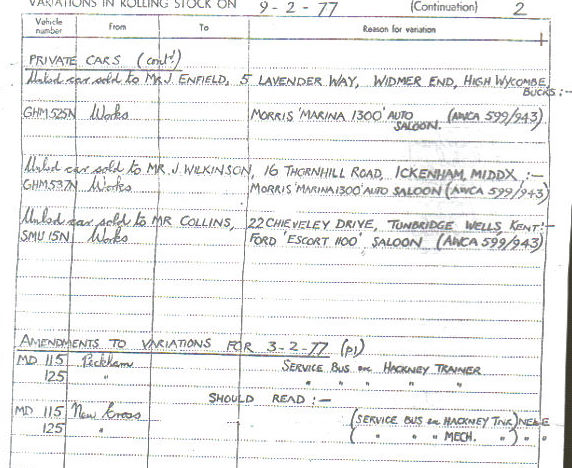 VARIATIONS IN ROLLING STOCK ON 9-2-77 (Continuation) 2
Vehicle number From To Reason for variation
PRIVATE CARS (contd)
Unlsd car sold to MR J. ENFIELD, 5 LAVENDER WAY, WIDMER END, HIGH WYCOMBE
BUCKS :-
GHM 525N Works MORRIS 'MARINA 1300' AUTO (AWCA 599/943)
SALOON.
Unlsd car sold to MR. J. WILKINSON, 16 THORNHILL ROAD, ICKENHAM, MIDDX :-
GHM 537N Works MORRIS 'MARINA 1300' AUTO SALOON (AWCA 599/943)
Unlsd car sold to MR COLLINS, 22 CHIEVELEY DRIVE, TUNBRIDGE WELLS, KENT:-
SMU 15N Works FORD 'ESCORT 1100' SALOON (AWCA 599/943)
AMENDMENTS TO VARIATIONS FOR 3-2-77 (p1)
MD 115 Peckham SERVICE BUS ex HACKNEY TRAINER
125 " " " " " "
SHOULD READ :-
MD 115 New Cross (SERVICE BUS ex HACKNEY TNR)
125 " ( " " " MECH. " ) " "